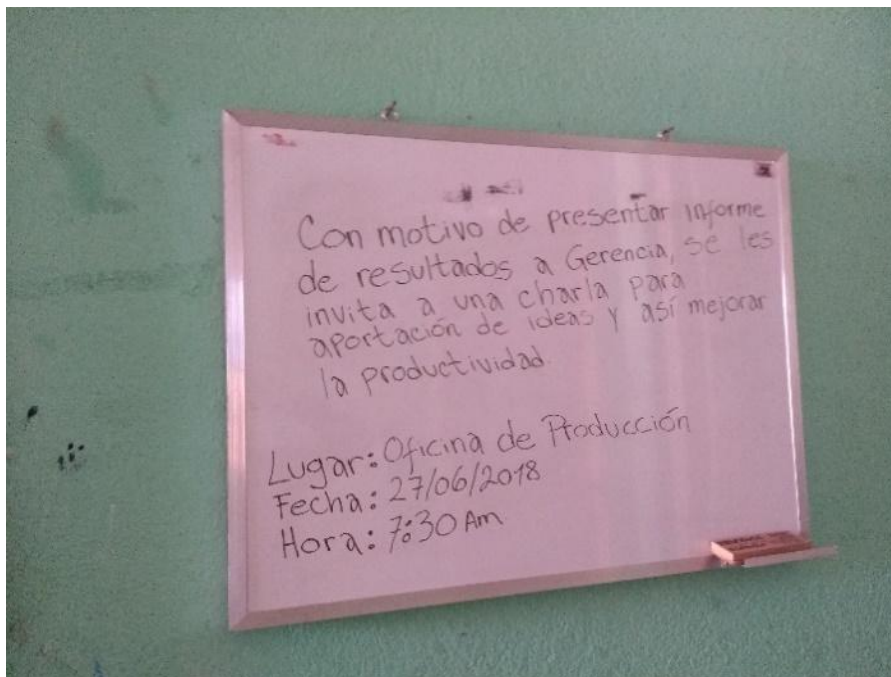 Con motivo de presentar informe
de resultados a Gerencia, se les
invita a una charla para
aportación de ideas y así mejorar
la productividad.
Lugar: Oficina de Producción
Fecha: 27/06/2018
Hora: 7:30 Am